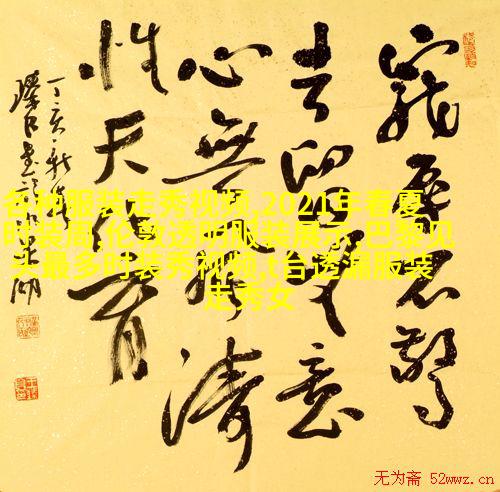 寵辱不驚
去留无意
心無風濤
性天化育
丁亥新春
各种服装走秀视频,2021年春夏
时装周,伦敦透明服装展示,巴黎见
头最多时装秀视频,t台透漏服装
走秀女
无为斋 52wwz.cn